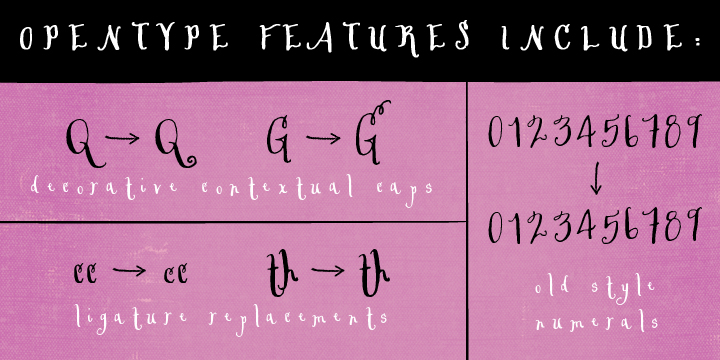 OPENTYPE FEATURES INCLUDE:
Q → Q G → G
decorative contextual caps
cc → cc th → th
ligature replacements
0123456789
↓
0123456789
old style
numerals